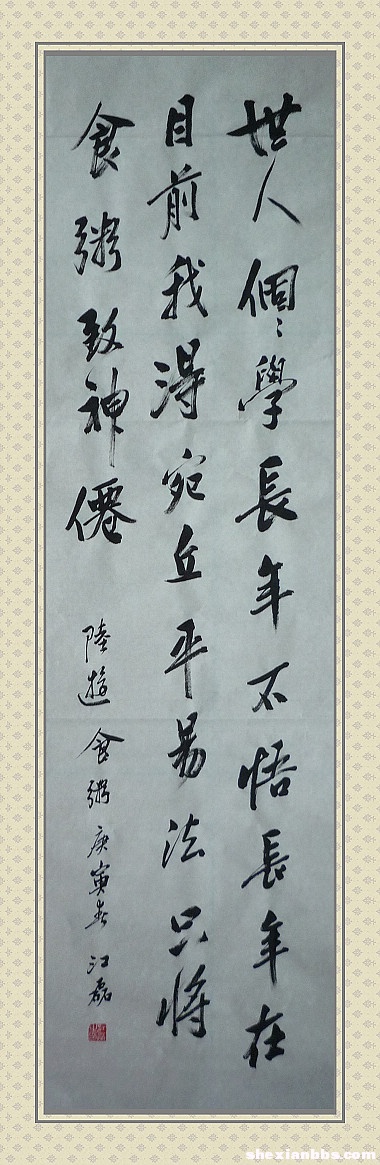 世人個〻學長年不悟長年在
目前我得宛丘平易法只將
食粥致神僊
陸游食粥庚寅春江磊
shexianbbs.com